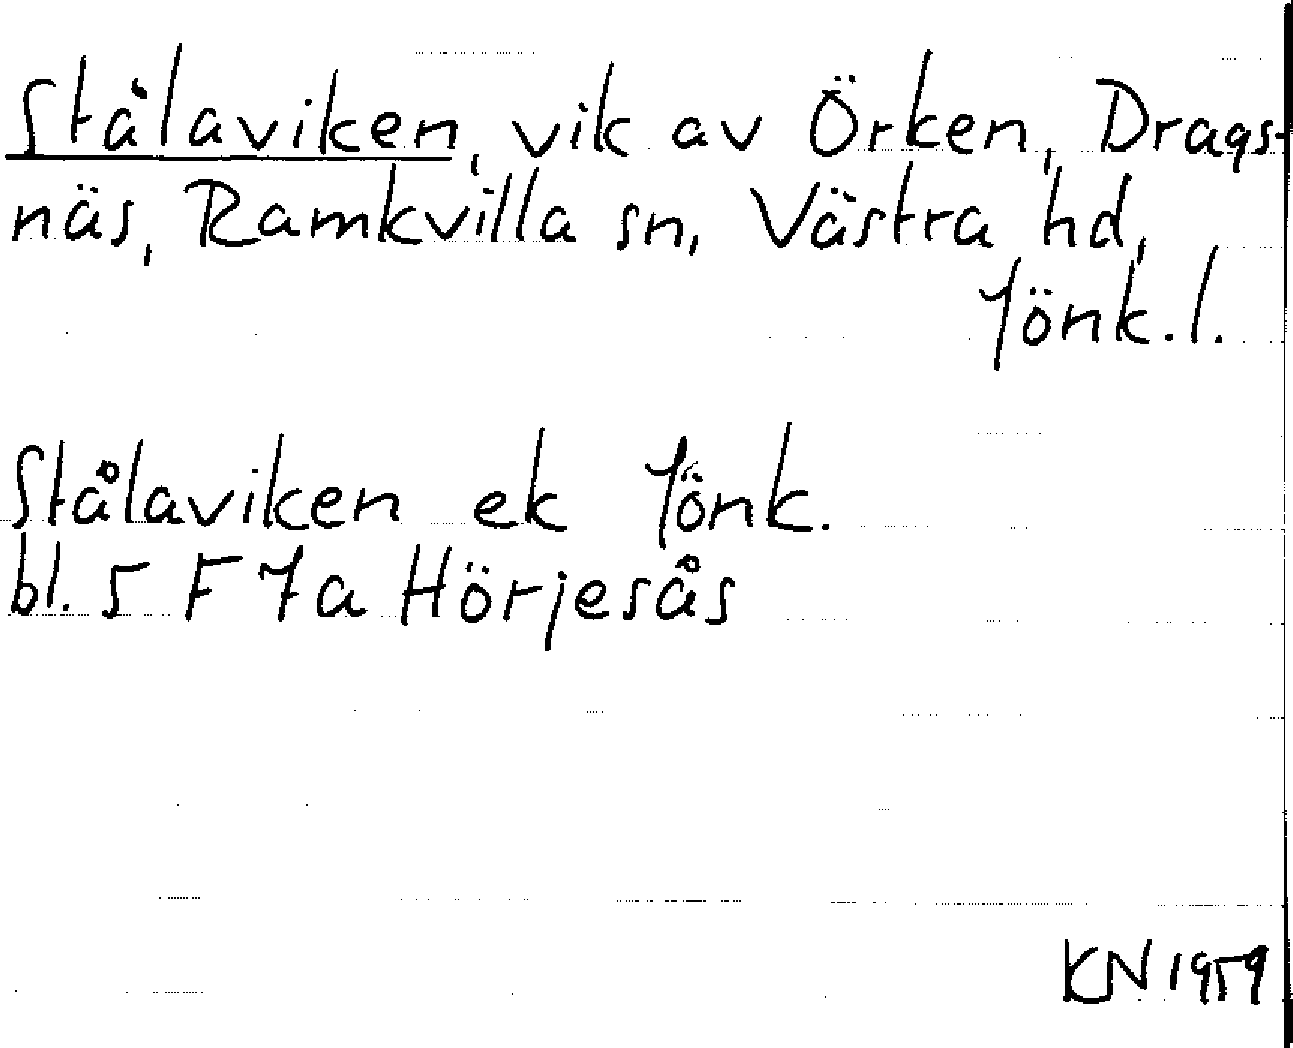 Stålaviken, vik av Örken, Drags-
näs, Ramkvilla sn, Västra hd,
Jönk.l.
Stålaviken ek Jönk.
bl. 5 F 7a Hörjesås
KN 1959